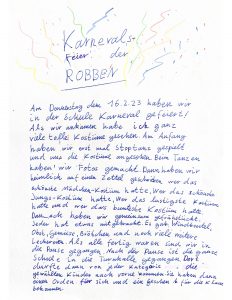 Karnevals-
feier der
ROBBEN
Am Donnerstag den 16.2.23 haben wir
in der Schule Karneval gefeiert!
Als wir ankamen habe ich ganz
viele tolle Kostüme gesehen. Am Anfang
haben wir erst mal Stoptanz gespielt
und uns die Kostüme angesehen. Beim Tanzen
haben wir Fotos gemacht. Dann haben wir
heimlich auf einen Zettel geschrieben wer das
schönste Mädchen-Kostüm hatte, Wer das schönste
Jungs-Kostüm hatte, Wer das lustigste Kostüm
hatte und wer das bunteste Kostüm hatte.
Danach haben wir gemeinsam gefrühstückt.
Jeder hat etwas mitgebracht. Es gab Würstchen
Obst, Gemüse, Brötchen und noch viele mehr
Leckereien. Als alle fertig waren sind wir in
die Pause gegangen. Nach der Pause ist die ganze
Schule in die Turnhalle gegangen. Dort
durfte dann von jeder Kategorie die
gewählten Kinder nach vorne kommen. Sie haben dann
einen Orden für sich und ein geschenk für die Klasse
bekommen.